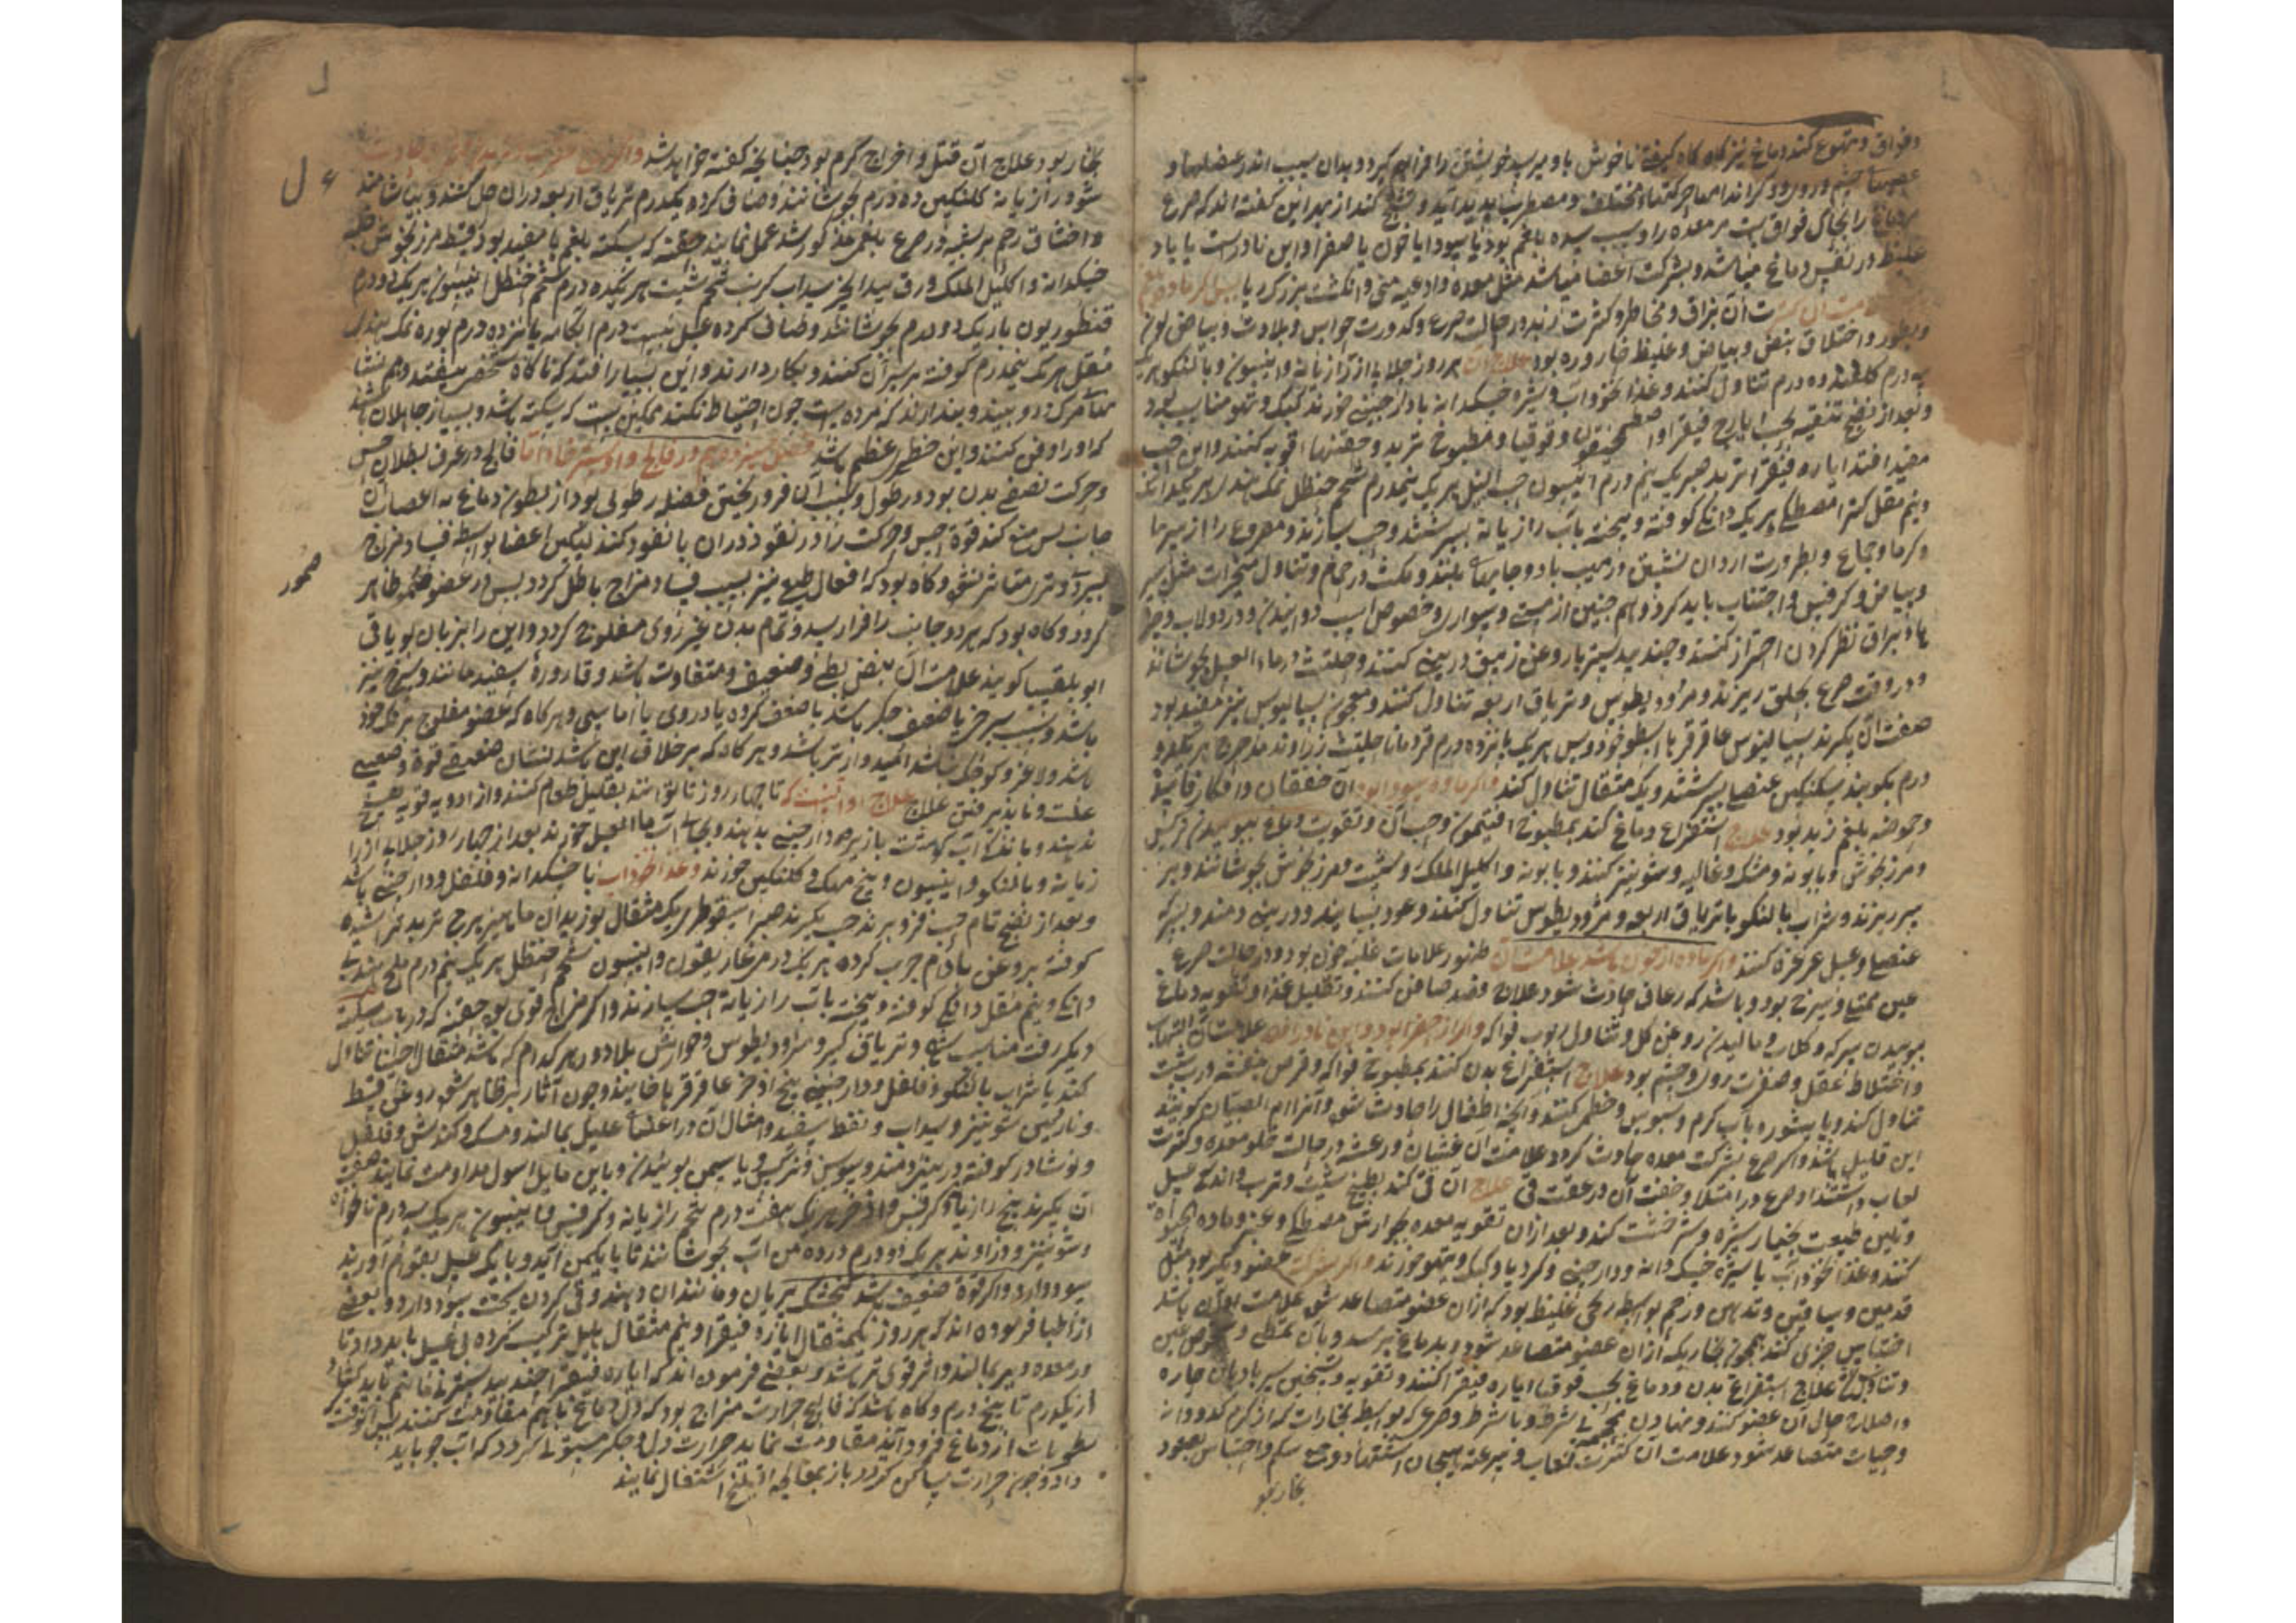 و فواق و تهوع کند دماغ نیز کاه کاه کیفیة ناخوش باو میرسد خویشتن را فراهم کیرد و بدان سبب اندر عضلها و
عصبهای چشم و روی و دیکر اندامها حرکتها مختلف و مضطرب پدید آید و تشنج کند از بهر این کفته اند که صرع
دماغ را بجای فواق است مر معده را و سبب سده بلغم بود یا سودا یا خون یا صفرا و این نادرست یا باد
غلیظ در نفس دماغ میباشد و بشرکت اعضا میباشد مثل معده و اوعیه منی و انکشت
آن بزاق و مخاط و کثرت زبد در حالت صرع و کدورت حواس و بلادت و بیاض لون
و اختلاق نبض و بیاض و غلیظ قاروره بود علاج آن هر روز جلاب از رازیانه و انیسون و بالنکو هریک
سه درم کلقند ده درم تناول کنند و غذا نخوداب و شیره خسکدانه بادار چینی خورند کبک و تیهو مناسب بود
و بعد از نضج تنقیه بحب ایارج فیقرا و اصطمحیقون و قوقایا و مطبوخ تربد و حقنهاء قویه کنند و این حب
مفید افتد ایاره فیقرا تربد هریک نیم درم انیسون حب النیل هریک نیمدرم شحم حنظل نمک هندی هریک دانکی
و نیم مقل کتیرا مصطکی هریک دانکی کوفته و بیخته بآب رازیانه بسرشند و حب سازند و مصروع را از سرما
و کرما و جماع و
و بیاض و کرفس و اجتناب باید کرد و هم چنین از مستی و سواری و خصوص اسب دوانیدن و در دولاب و چیز
ها و براق نظر کردن احتراز کنند و جند بیدستر با روغن زنبق در بینی کنند و حلتیت در ماء العسل بجوشانند
و در وقت صرع بحلق ریزند و مثرودیطوس و تریاق اربعه تناول کنند و معجون سیسالیوس نیز مفید بود
صفت آن بکیرند سیسالیوس عاقرقرحا اسطوخودوس هریک پانزده درم قردمانا حلتیت زراوند مدحرج هریک دو
درم بکوبند سکنکبین عنصلی بسرشند و یک مثقال تناول کند و اکر ماده سودا بود آن خفقان و افکار فاسد
و حموضه بلغم زبد بود علاج استفراغ دماغ کند بمطبوخ افتیمون و حب آن و تقویت دماغ ببوییدن نرکس
و مرزنجوش و بابونه و مشک و غالیه و شونیز کنند و بابونه و اکلیل الملک و شبت و مرزنجوش بجوشانند و بر
سر ریزند و شراب بالنکو با تریاق اربعه و مثرودیطوس تناول کنند و عود بسایند و در بینی دمند و بسرکه
عنصلی و عسل غرغره کنند و اکر ماده از خون باشد علامت آن ظهور علامات غلبه خون بود و در حالت صرع
عین ممتلی و سرخ بود و باشد که رعاف حادث شود علاج فصد صافن کنند و تقلیل غذا و تقویه دماغ
ببوییدن سرکه و کلاب و مالیدن روغن کل و تناول ربوب فواکه و اکر از صفرا بود و این نادر است علامت آن التهاب
و اختلاط عقل و صفرت روی و چشم بود علاج استفراغ بدن کنند بمطبوخ فواکه و قرص بنفشه و رب شبت
تناول کنند و پا بیشویه بآب کرم و سبوس و خطمی کنند و آنچه اطفال را حادث شود و آنرا ام الصبیان کویند
این قلیل باشد و اکر صرع بشرکت معده حادث کردد علامت آن غشیان و رعشه در حالت خلو معده و کثرت
لعاب و اشتداد صرع در امتلا و خفت آن در عقب قی علاج آن قی کند بطبیخ شبت و ترب و اندک عسل
و تلیین طبیعت بخیار شنبر و شیرخشت کند و بعد از آن تقویه معده بجوارش مصطکی و عنبر و
کنند و غذا نخوداب با شیره خسک دانه و دارچینی و کرویا و کبک و تیهو خورند و اکر بشرکت عضو دیکر بود مثل
قدمین و ساقین و یدین و رحم بواسطه ریحی غلیظ بود که از آن عضو متصاعد شود علامت آن باشد
احساس چیزی کند همچون بخار که از آن عضو متصاعد شود و بدماغ رسد
علاج استفراغ بدن و دماغ بحب قوقایا و ایاره فیقرا کنند و تقویه و تسخین سر بادهان حاره
و اصلاح حال آن عضو کنند و نهادن محجمه بی شرط و با شرط و صرعی که بواسطه بخارات که از کرم کدو دانه
و حیات متصاعد شود علامت آن کثرت لعاب و سرعة هیجان اشتها و وجع شکم و احتباس صعود
بخار بو
بخار بود علاج آن قتل و اخراج کرم بود چنانچه کفته خواهد شد
شود رازیانه کلنکبین ده درم بجوشانند و صافی کرده یکدرم تریاق اربعه در آن حل کنند و بیاشامند
و اختناق رحم هرنسخه در صرع بلغمی مذکور شد عمل نمایند حقنه که سکته بلغمی را مفید بود قسط مرزنجوش حلبه
خسکدانه و اکلیل الملک ورق بید انجیر سداب کرنب تخم شبت هریک ده درم شحم حنظل انیسون هریک دو درم
قنطوریون باریک دو درم بجوشانند و صافی کرده عسل بیست درم آبکامه پانزده درم بوره نمک هندی
مقل هریک نیمدرم کوفته بر سر آن کنند و بکار دارند و این بسیار افتد که ناکاه شخص بیفتد و هم نشان
مرک درو ببینند و پندارند که مرده است چون احتیاط نکنند ممکنست که سکته باشد و بسیار جاهلان باشند
که او را دفن کنند و این خطر عظیم باشد فصل سیزدهم در فالج و استرخا اما فالج در عرف بطلان حس
و حرکت نصف بدن بود در طول و سبب آن فرو ریختن فضله رطوبی بود از بطون دماغ به اعصاب آن
جانب پس منع کند قوة حس و حرکت را در نفوذ در آن یا نفوذ کند لیکن اعضا بواسطه فساد مزاج
سرد و تر متاثر نشود و کاه بود که افعال طبع نیز بسبب فساد مزاج باطل کردد پس در عضو ضمور ظاهر
کردد و کاه بود که هر دو جانب را فرا رسد و تمام بدن غیر روی مفلوج کردد و این را بزبان یونانی
ابوبلقسیا کویند علامت آن نبض بطی و ضعیف و متفاوت باشد و قاروره سفید مانند و سرخ نیز
باشد و سبب سرخی یا ضعف جکر باشد یا ضعف کرده یا دردی یا آماسی و هر کاه که عضو مفلوج برنک خود
باشد و لاغر و کوچک نباشد امیدوارتر باشد و هر کاه که بر خلاف این باشد نشان ضعیفی قوة و صعبی
علت و ناپذیرفتن علاج علاج او آنست که تا چهار روز تا بتوانند بتقلیل طعام کنند و از ادویه قویه هیچ
ندهند و ماند آب کوشت با زیره و دارچینی بدهند و بجای آب ماء العسل خورند بعد از چهار روز جلاب از را
زیانه و بالنکو و انیسون و بیخ مهک و کلنکبین خورند و غذا نخوداب با خسکدانه و فلفل و دارچینی باشد
و بعد از نضج تمام حب فرو برند حب بکیرند صبر اسقوطری یک مثقال بوزیدان ماهیزهرج تربد تراشیده
کوفته بروغن بادام چرب کرده هریک درمی غاریقون و انیسون شحم حنظل هریک نیم درم ملح هندی
دانکی و نیم مقل دانکی کوفته و بیخته بآب رازیانه حب سازند و اکر مزاج قوی بود حقنه که در باب سکته
دیکر رفت مناسب و تریاق کبیر و مثرودیطوس و جوارش بلادر هر کدام که باشد مثقالی احیانا تناول
کند با شراب بالنکو و فلفل و دارچینی بیخ اذخر عاقرقرحا خایند و چون آثار برء ظاهر شود روغن قسط
و ناردین شونیز و سداب و نفط سفید و امثال آن در اعضاء علیل بمالند و مشک و کندش و فلفل
و نوشادر کوفته در بینی دمند و سوسن و نرکس و یاسمن بویند و باین ماء الاصول مداومت نمایند صفت
آن بکیرند بیخ رازیانه کرفس و اذخر هریک هفت درم تخم رازیانه و کرفس و انیسون هریک سه درم نانخواه
و شونیز و زراوند هریک دو درم در ده من آب بجوشانند تا با یکمن آید و با یک من عسل بقوام آورند
سود دارد و اکر قوة ضعیف باشد کنجشک بریان و مانند آن دهند و قی کردن سخت سود دارد و بعضی
از اطبا فرموده اند که هر روز یکمثقال ایاره فیقرا و نیم مثقال پلپل ترکیب کرده بی عسل باید داد تا
در معده دیر بماند و اثر قوی تر باشد و بعضی فرموده اند که ایاره فیقرا جند بیدستر
از یکدرم تا پنج درم و کاه باشد که فالج حرارت مزاج بود که
رطوبات از دماغ فرود آید مقاومت نماید حرارت دل و جکر مستولی کردد که آب جو باید
داد و چون حرارت ساکن کردد باز بمعالجه اشتغال نمایند
ضمور